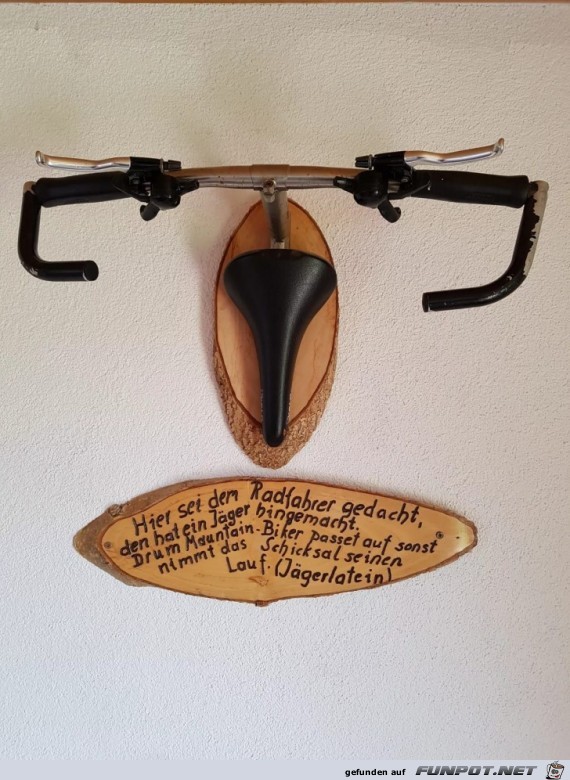 Hier sei dem Radfahrer gedacht,
den hat ein Jäger hingemacht.
Drum Mauntain-Biker passet auf sonst
nimmt das Schicksal seinen
Lauf. (Jägerlatein)
gefunden auf FUNPOT.NET